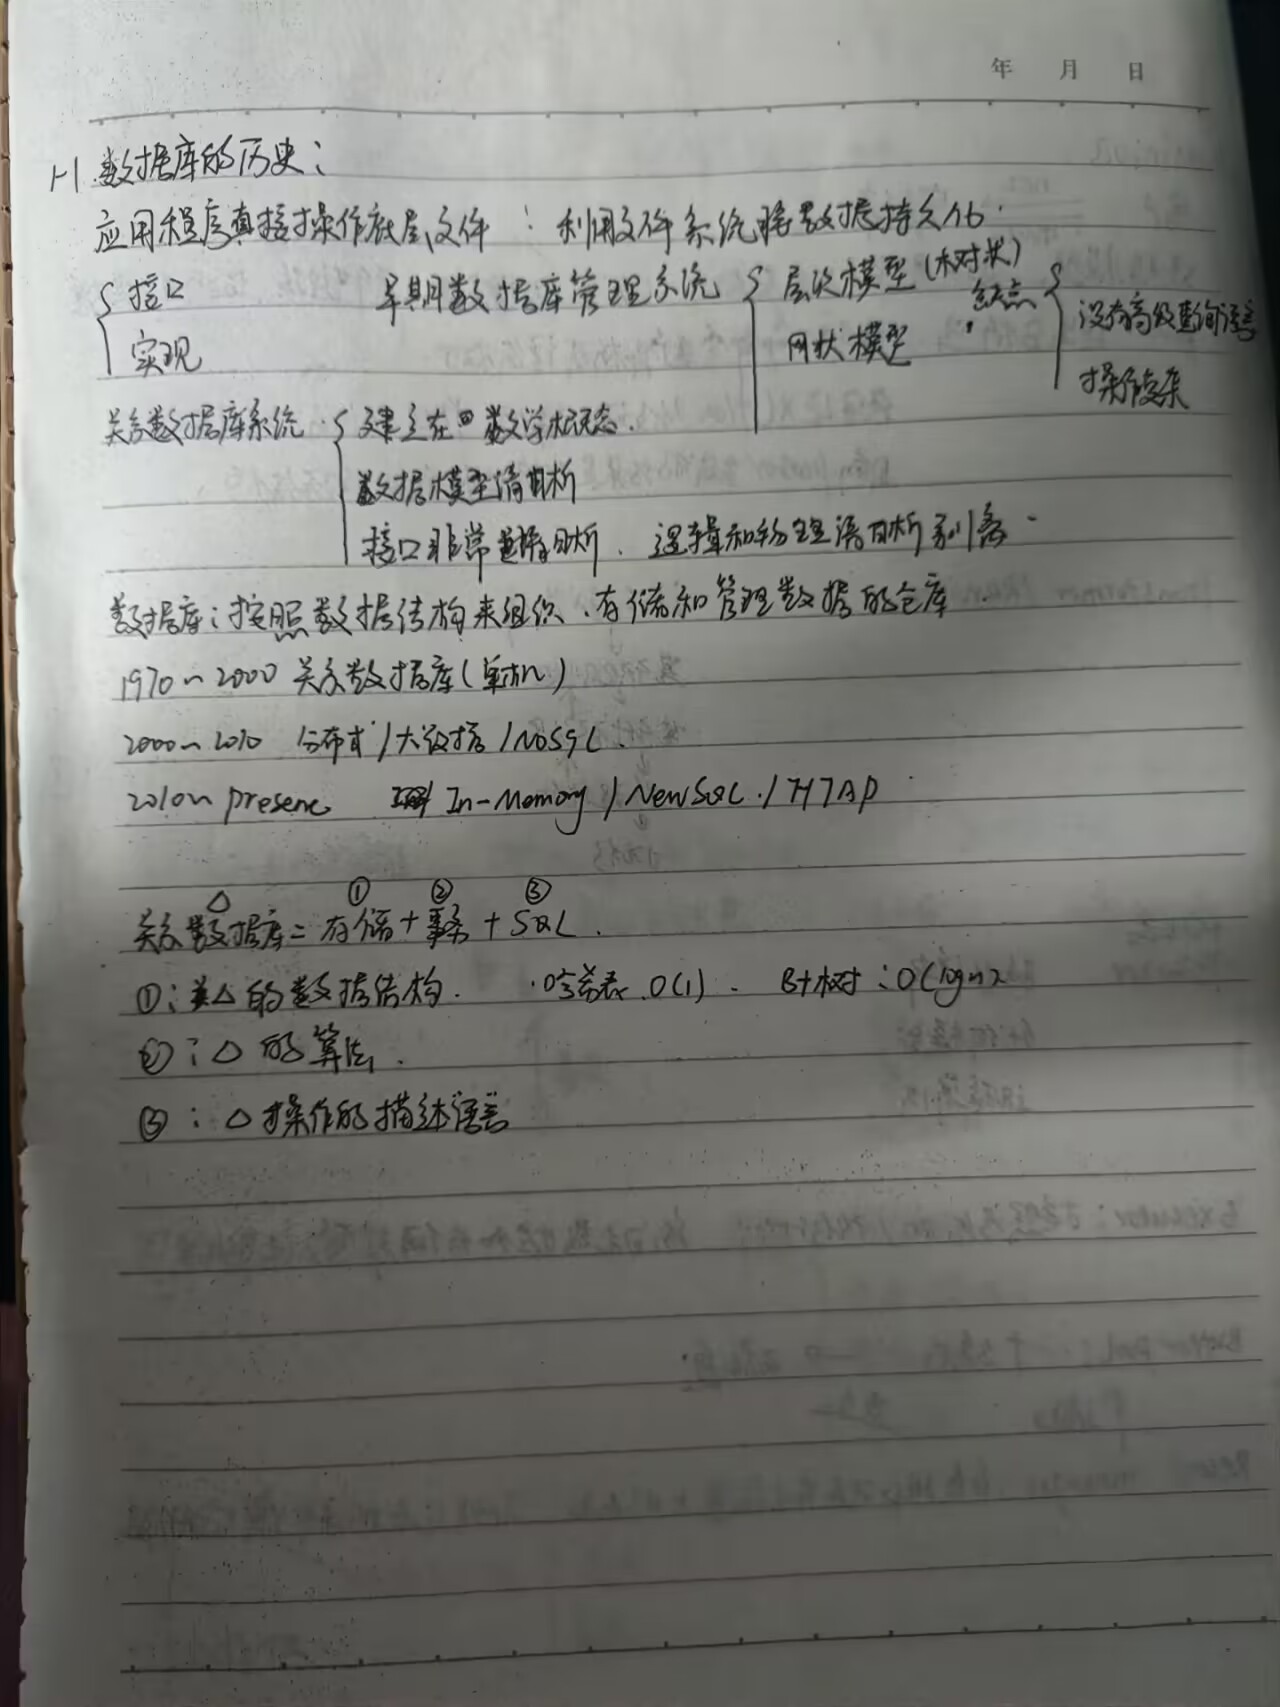 年 月 日
1-1 数据库的历史:
应用程序直接操作底层文件 : 利用文件系统将数据持久化.
{ 接口 早期数据库管理系统 { 层次模型 (树状) 缺点 { 没有高级查询语言
实现 网状模型 操作复杂
关系数据库系统 { 建立在 数学概念.
数据模型清晰
接口非常清晰. 逻辑和物理清晰剥离.
数据库: 按照数据结构来组织、存储和管理数据的仓库.
1970~2000 关系数据库(单机)
2000~2010 分布式/大数据/NoSQL.
2010~ presenc In-Memory / NewSQL. / HTAP
△ ① ② ③
关系数据库= 存储+事务+SQL.
①: 关△的数据结构. 哈希表. O(1). B+树: O(logn)
②: △的算法.
③: △操作的描述语言